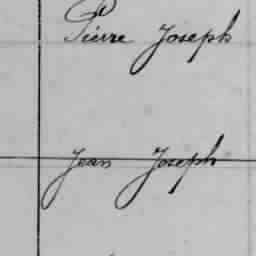 Pierre Joseph
Jean Joseph